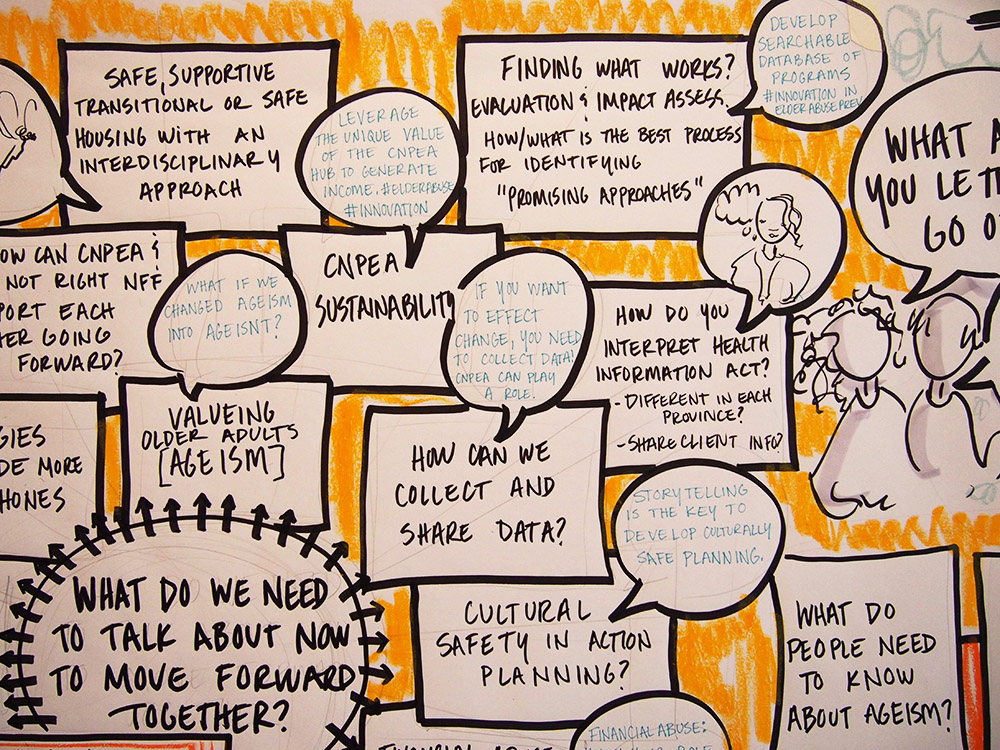 SAFE, SUPPORTIVE
TRANSITIONAL OR SAFE
HOUSING WITH AN
INTERDISCIPLINARY
APPROACH
LEVERAGE
THE UNIQUE VALUE
OF THE CNPEA
HUB TO GENERATE
INCOME. #ELDERABUSE
#INNOVATION
FINDING WHAT WORKS?
EVALUATION & IMPACT ASSESS.
HOW/WHAT IS THE BEST PROCESS
FOR IDENTIFYING
"PROMISING APPROACHES"
DEVELOP
SEARCHABLE
DATABASE OF
PROGRAMS
#INNOVATION IN
ELDERABUSEPREV
WHAT A
YOU LETT
GO O
OW CAN CNPEA &
NOT RIGHT NFF
PORT EACH
HER GOING
FORWARD?
WHAT IF WE
CHANGED AGEISM
INTO AGEISNT?
CNPEA
SUSTAINABILITY
IF YOU WANT
TO EFFECT
CHANGE, YOU NEED
TO COLLECT DATA!
CNPEA CAN PLAY
A ROLE!
HOW DO YOU
INTERPRET HEALTH
INFORMATION ACT?
- DIFFERENT IN EACH
PROVINCE?
- SHARE CLIENT INFO?
GIES
DE MORE
HONES
VALUEING
OLDER ADULTS
[AGEISM]
HOW CAN WE
COLLECT AND
SHARE DATA?
STORYTELLING
IS THE KEY TO
DEVELOP CULTURALLY
SAFE PLANNING.
WHAT DO WE NEED
TO TALK ABOUT NOW
TO MOVE FORWARD
TOGETHER?
CULTURAL
SAFETY IN ACTION
PLANNING?
WHAT DO
PEOPLE NEED
TO KNOW
ABOUT AGEISM?
FINANCIAL ABUSE:
FINANCIAL ABUSE